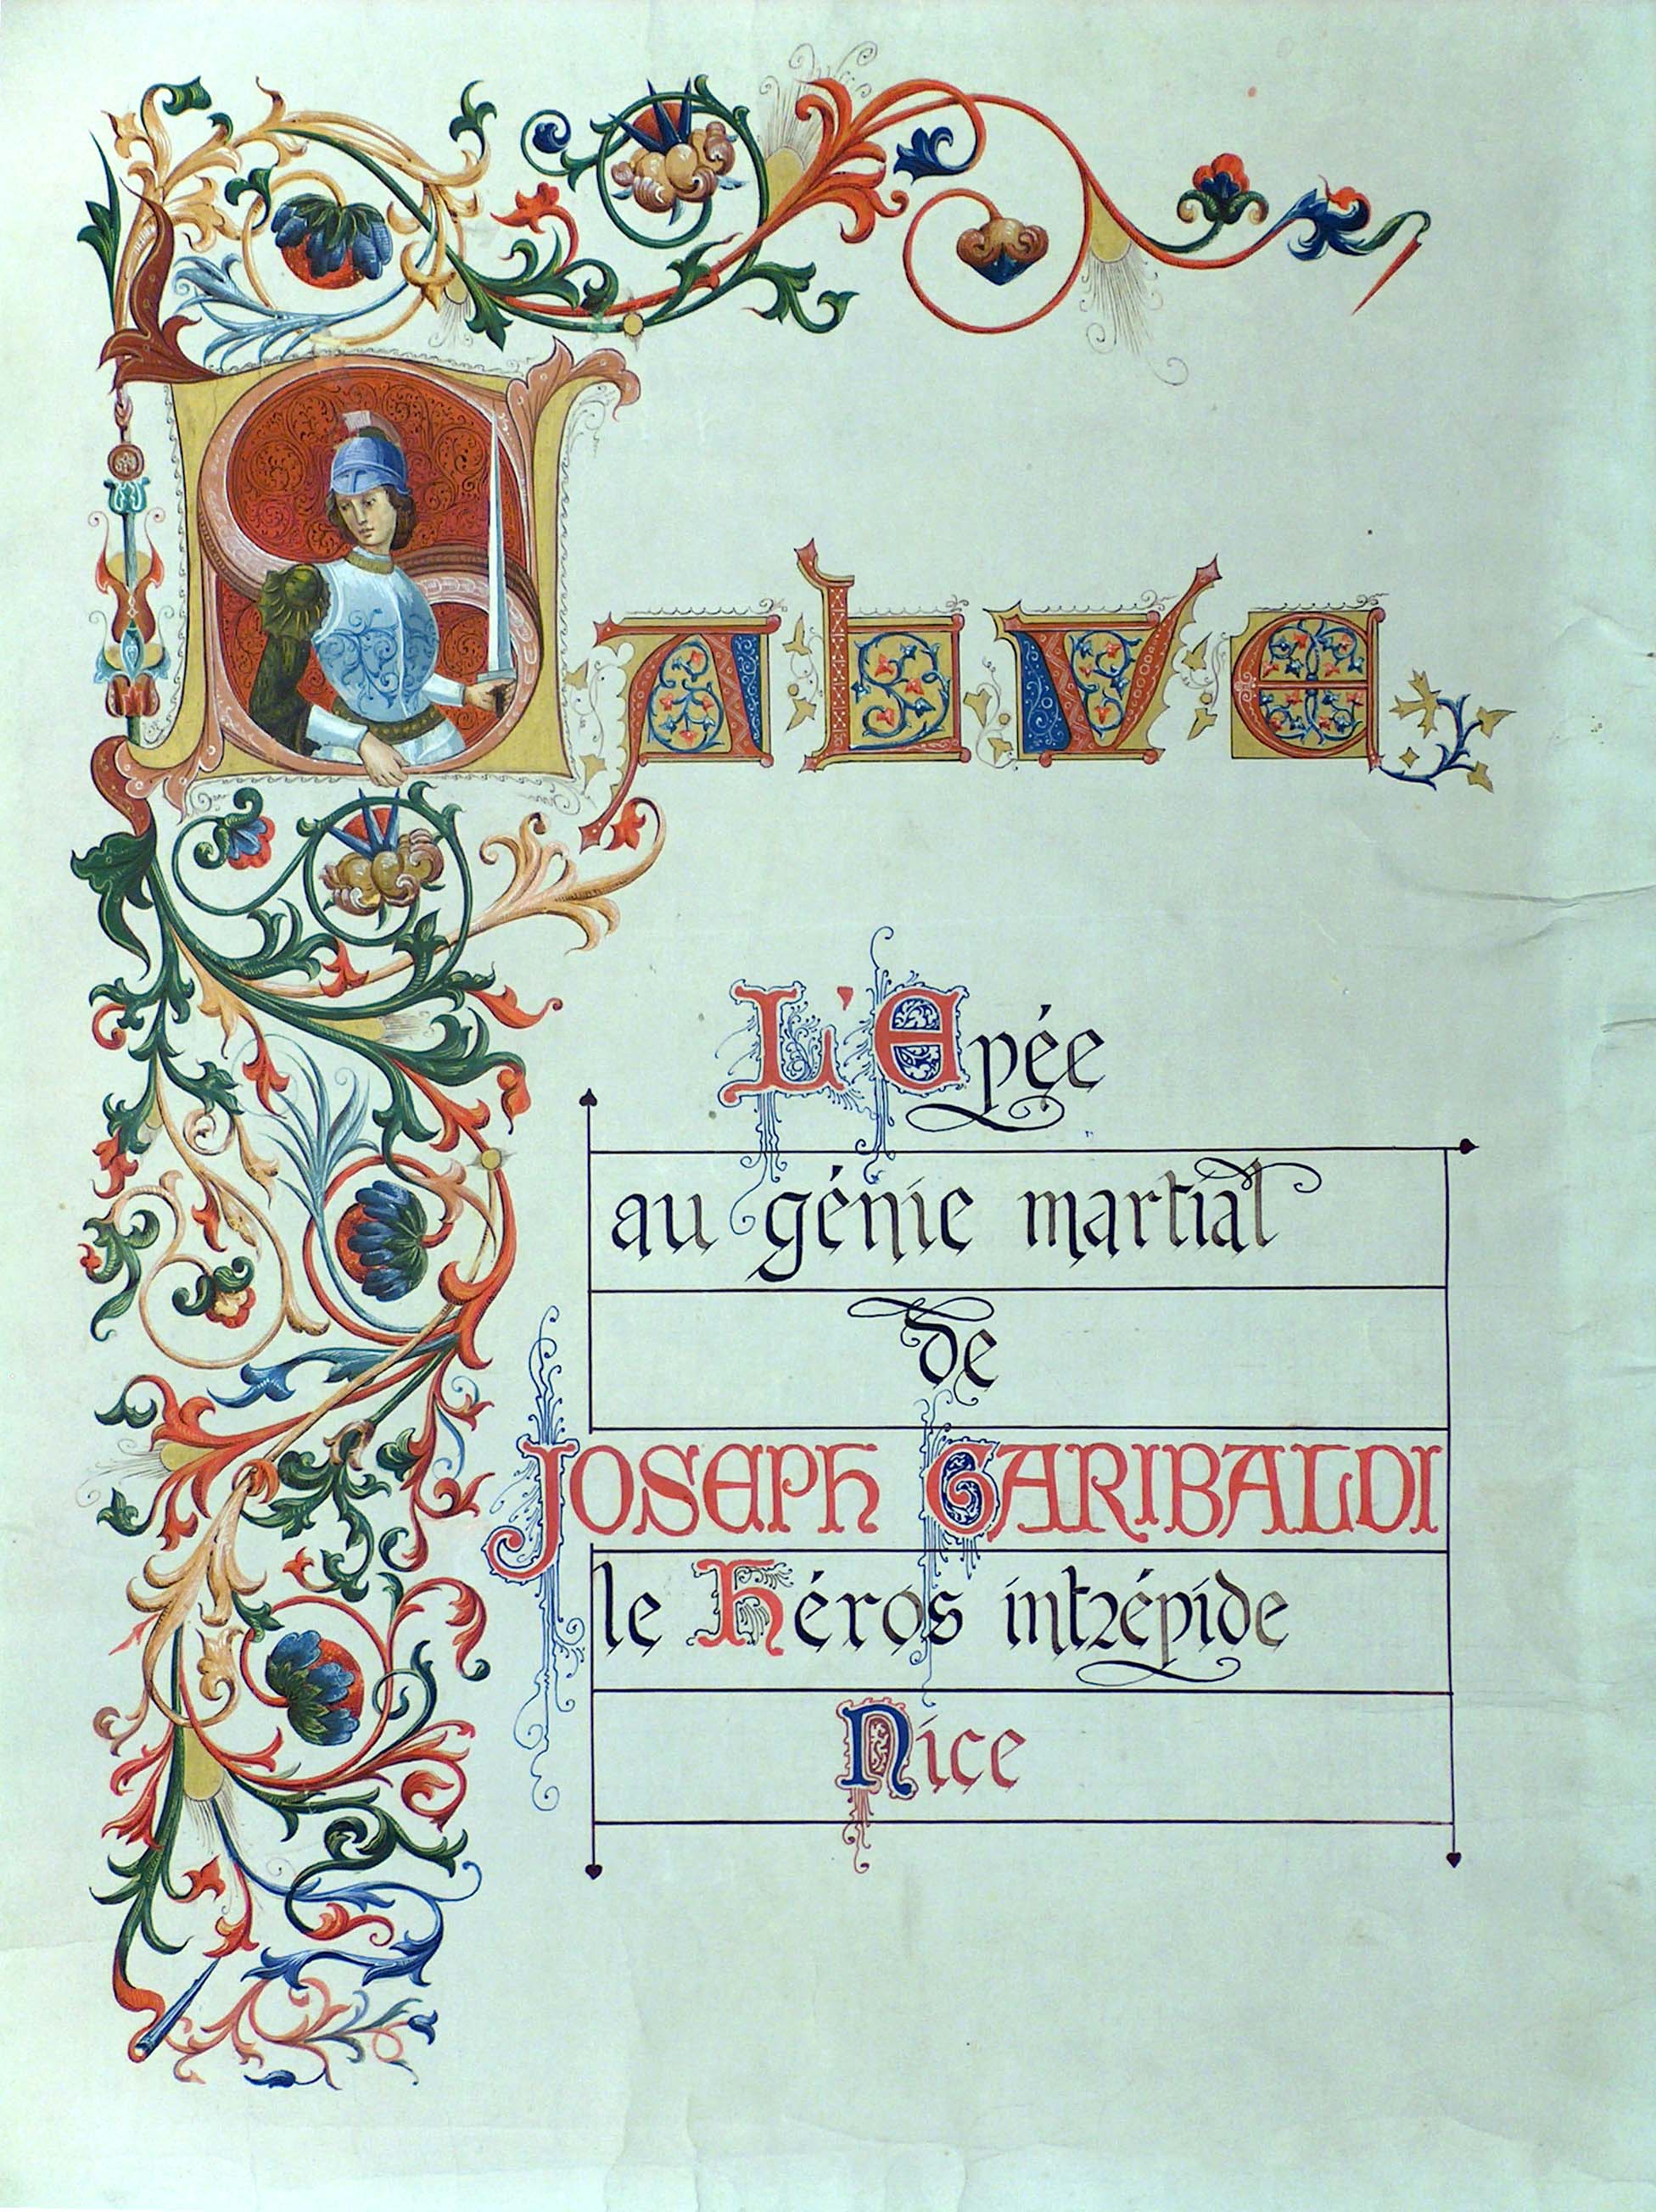 SALVE
L'Epée
au génie martial
de
JOSEPH GARIBALDI
le Héros intrépide
Nice